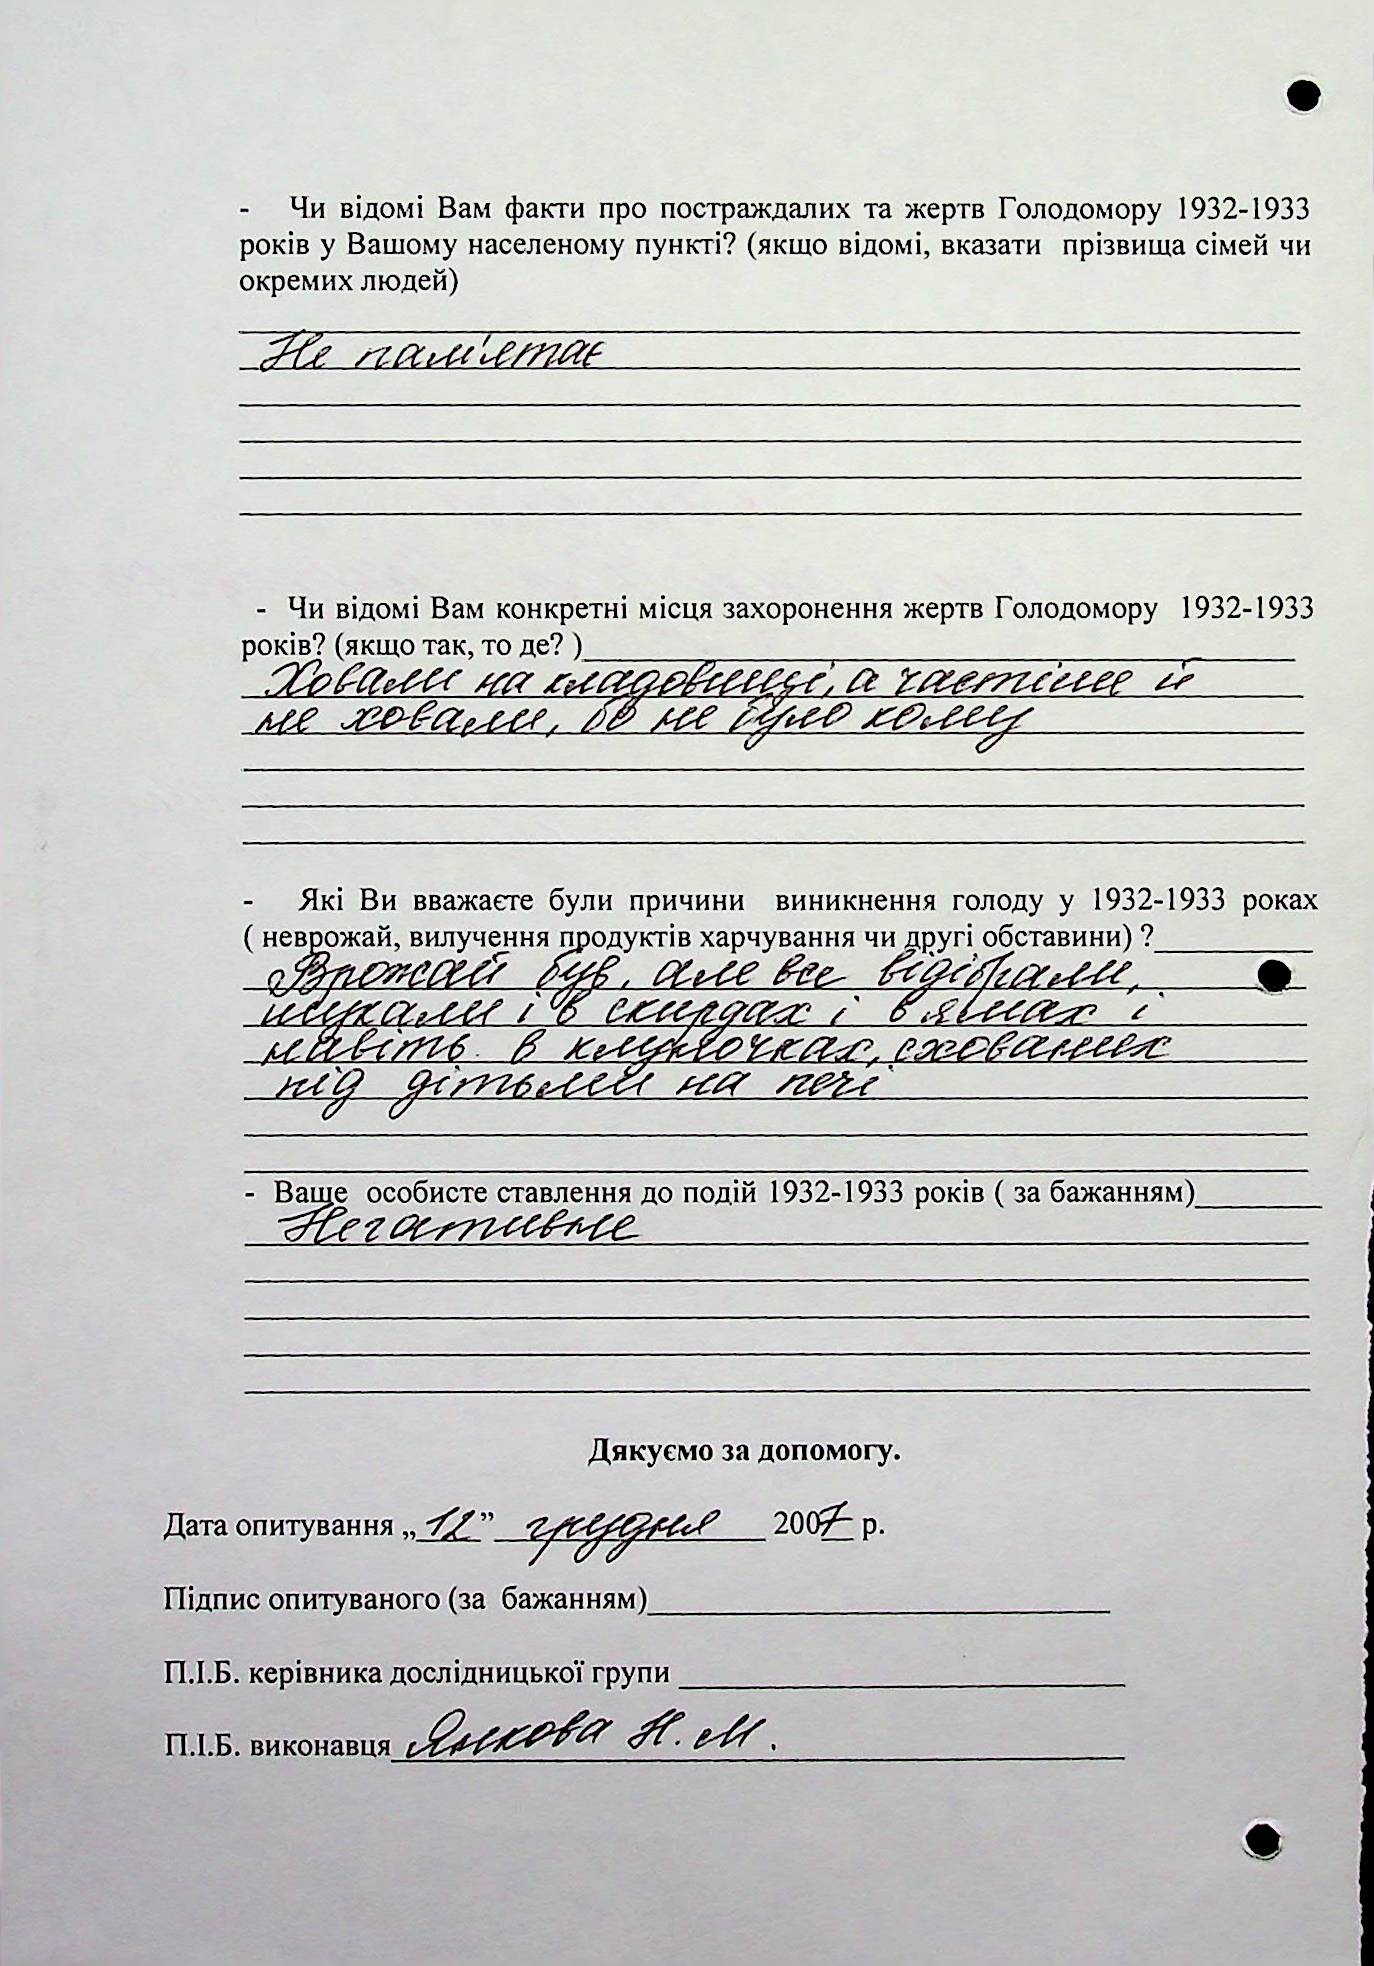 - Чи відомі Вам факти про постраждалих та жертв Голодомору 1932-1933
років у Вашому населеному пункті? (якщо відомі, вказати прізвища сімей чи
окремих людей)
Не пам'ятає
- Чи відомі Вам конкретні місця захоронення жертв Голодомору 1932-1933
років? (якщо так, то де? )
Ховали на кладовищі, а частіше й
не ховали, бо не було кому
- Які Ви вважаєте були причини виникнення голоду у 1932-1933 роках
( неврожай, вилучення продуктів харчування чи другі обставини) ?
Врожай був, але все відібрали,
шукали і в скирдах і в ямах і
навіть в клуночках, схованих
під дітьми на печі
- Ваше особисте ставлення до подій 1932-1933 років ( за бажанням)
Негативне
Дякуємо за допомогу.
Дата опитування „12" грудня 2007 р.
Підпис опитуваного (за бажанням)
П.І.Б. керівника дослідницької групи
П.І.Б. виконавця Янкова Н.М.